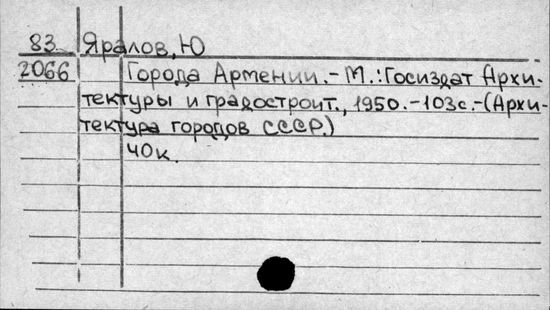 83 Яралов, Ю
2066 Города Армении. - М.: Госиздат Архи-
тектуры и градостроит., 1950. - 103с. - (Архи-
тектура городов СССР.)
40к.